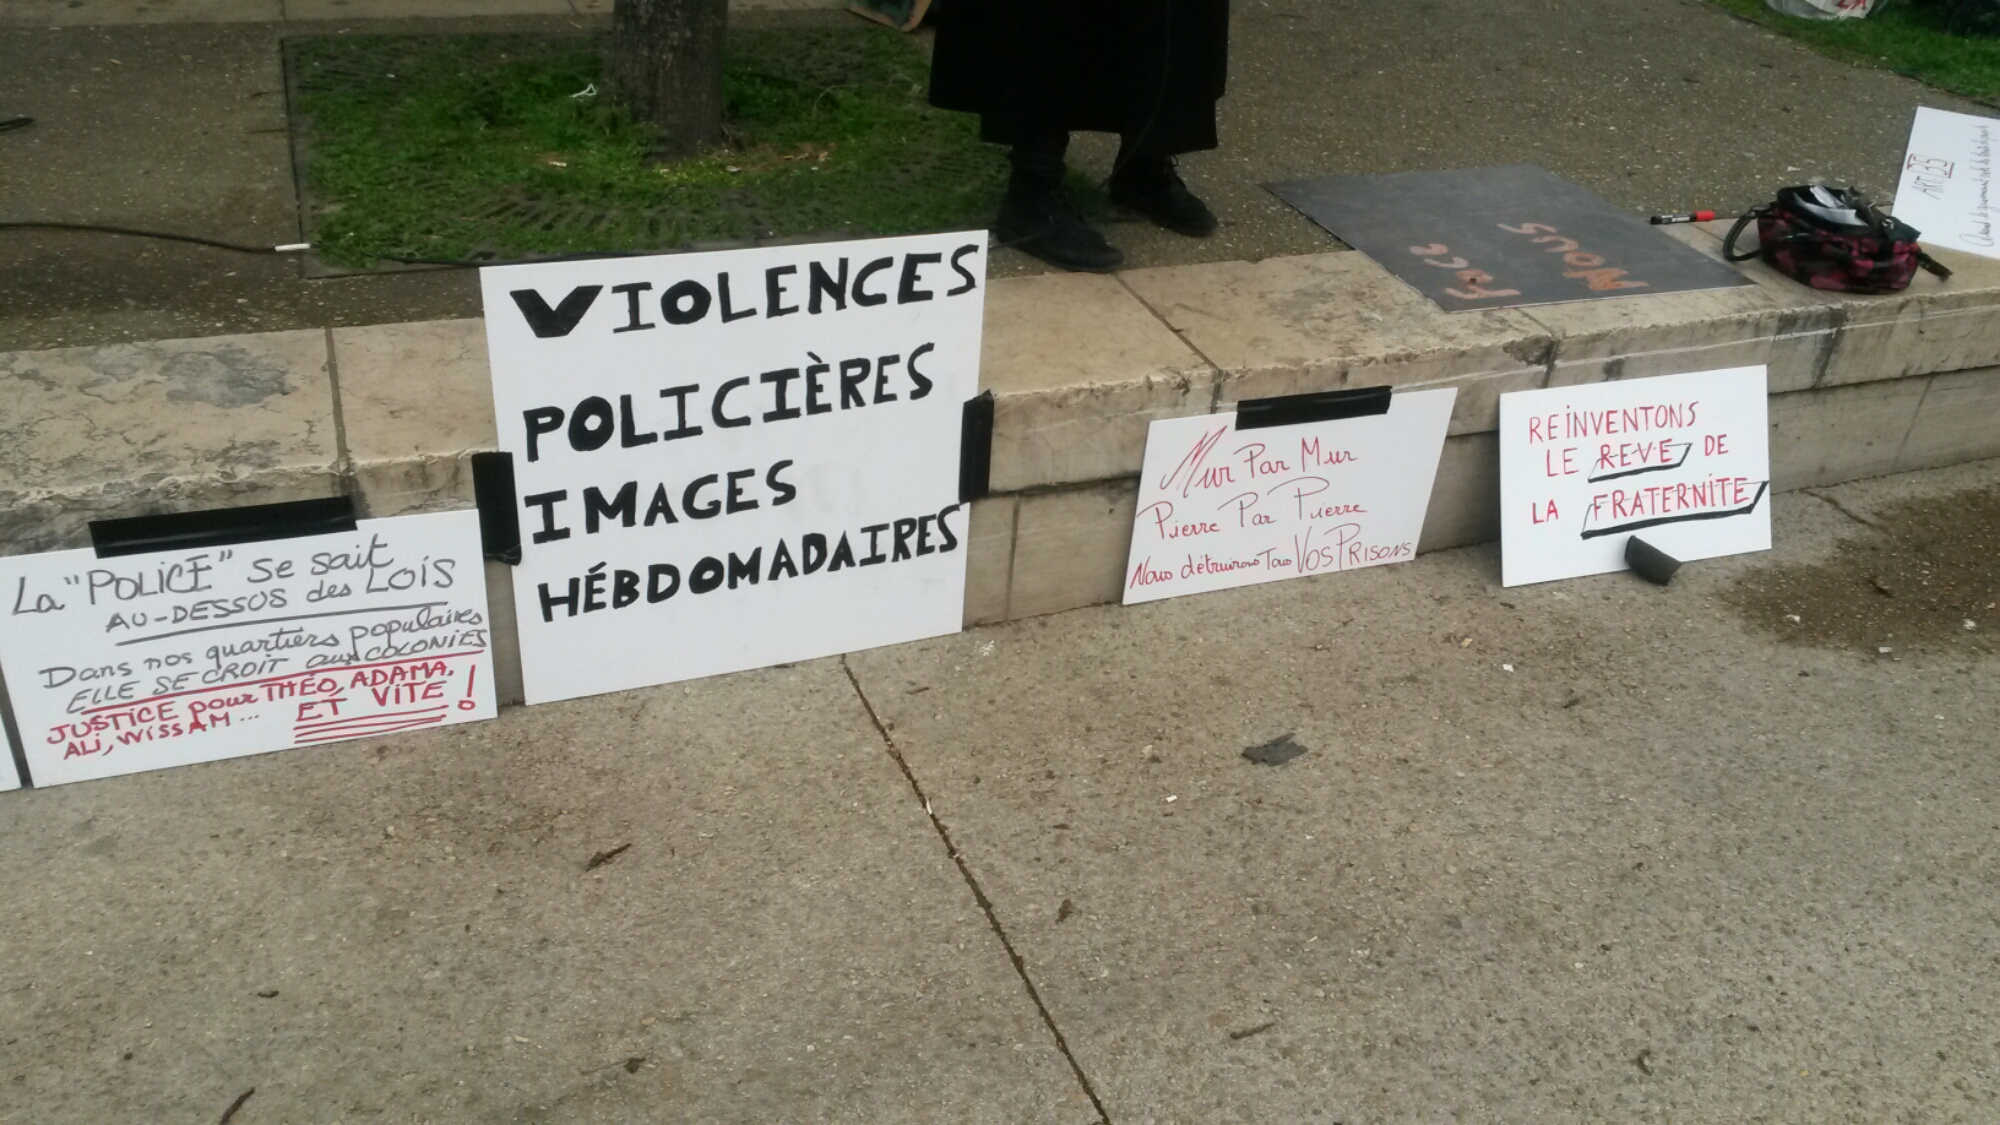 La "POLICE" se sait
AU-DESSUS des LOIS
Dans nos quartiers populaires
ELLE SE CROIT aux COLONIES
JUSTICE pour THÉO, ADAMA,
ALI, WISSAM... ET VITE !
VIOLENCES
POLICIÈRES
IMAGES
HÉBDOMADAIRES
Mur Par Mur
Pierre Par Pierre
Nous détruirons Tous VOS PRISONS
REINVENTONS
LE REVE DE
LA FRATERNITE
Face
NOUS
ART 35